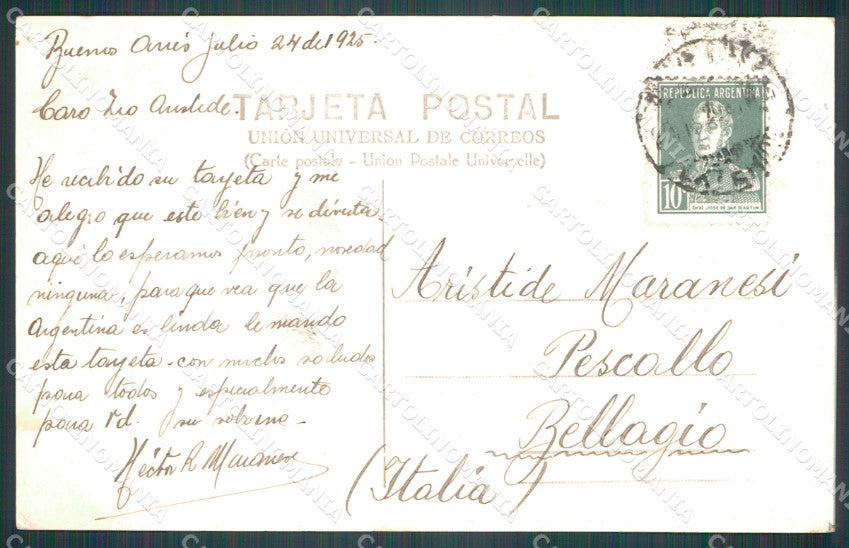 Buenos Aires Julio 24 de 1925.
Caro Zio Aristide.
TARJETA POSTAL
UNIÓN UNIVERSAL DE CORREOS
(Carte postale - Union Postale Universelle)
He recibido su tarjeta y me
alegro que este bien y se divierta.
aqui lo esperamos pronto, novedad
ninguna, para que vea que la
Argentina es linda le mando
esta tarjeta. con muchos saludos
para todos y especialmente
para Vd. su sobrino.
Héctor R Maranesi
REPUBLICA ARGENTINA
10
GRAL JOSE DE SAN MARTIN
Aristide Maranesi
Pescallo
Bellagio
(Italia)
CARTOLINOMANIA